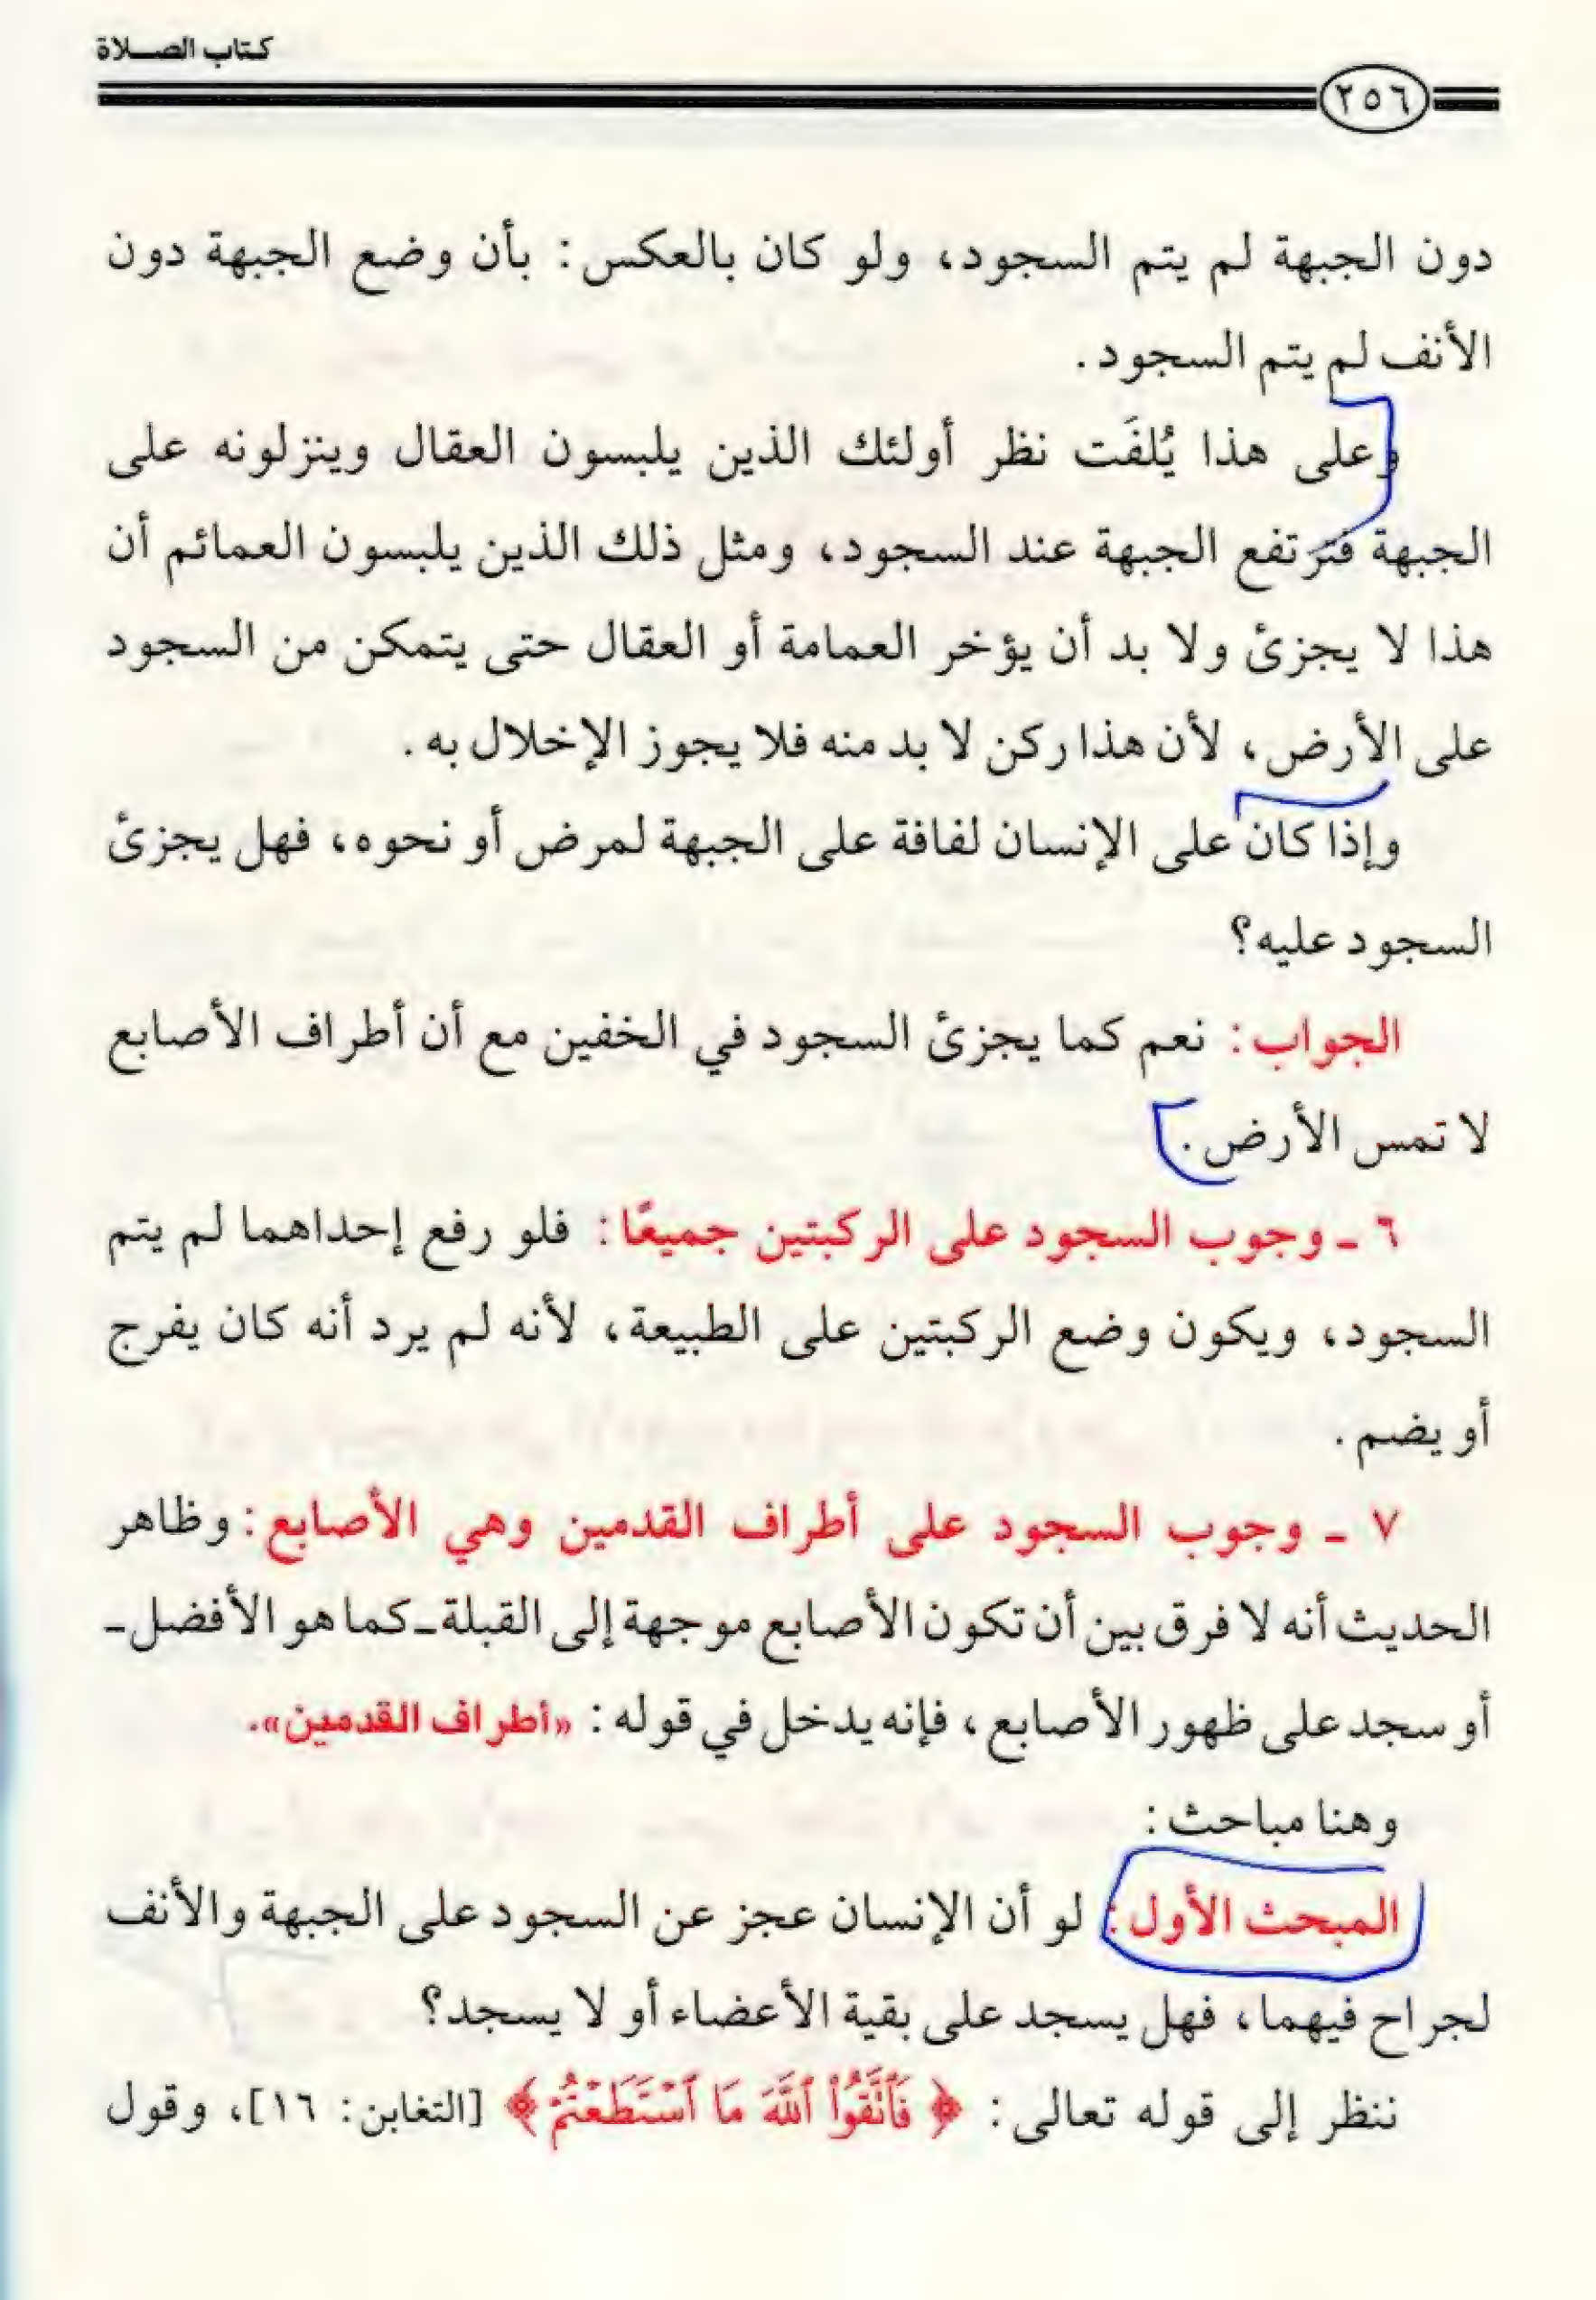 كتاب الصلاة
٢٥٦
دون الجبهة لم يتم السجود، ولو كان بالعكس: بأن وضع الجبهة دون
الأنف لم يتم السجود.
وعلى هذا يُلفَت نظر أولئك الذين يلبسون العقال وينزلونه على
الجبهة فترتفع الجبهة عند السجود، ومثل ذلك الذين يلبسون العمائم أن
هذا لا يجزئ ولا بد أن يؤخر العمامة أو العقال حتى يتمكن من السجود
على الأرض، لأن هذا ركن لا بد منه فلا يجوز الإخلال به.
وإذا كان على الإنسان لفافة على الجبهة لمرض أو نحوه، فهل يجزئ
السجود عليه؟
الجواب: نعم كما يجزئ السجود في الخفين مع أن أطراف الأصابع
لا تمس الأرض.
٦ ـ وجوب السجود على الركبتين جميعًا: فلو رفع إحداهما لم يتم
السجود، ويكون وضع الركبتين على الطبيعة، لأنه لم يرد أنه كان يفرج
أو يضم.
٧ ـ وجوب السجود على أطراف القدمين وهي الأصابع: وظاهر
الحديث أنه لا فرق بين أن تكون الأصابع موجهة إلى القبلة ـ كما هو الأفضل ـ
أو سجد على ظهور الأصابع، فإنه يدخل في قوله: «أطراف القدمين».
وهنا مباحث:
المبحث الأول: لو أن الإنسان عجز عن السجود على الجبهة والأنف
لجراح فيهما، فهل يسجد على بقية الأعضاء أو لا يسجد؟
ننظر إلى قوله تعالى: ﴿فَٱتَّقُوا۟ ٱللَّهَ مَا ٱسْتَطَعْتُمْ﴾ [التغابن: ١٦]، وقول